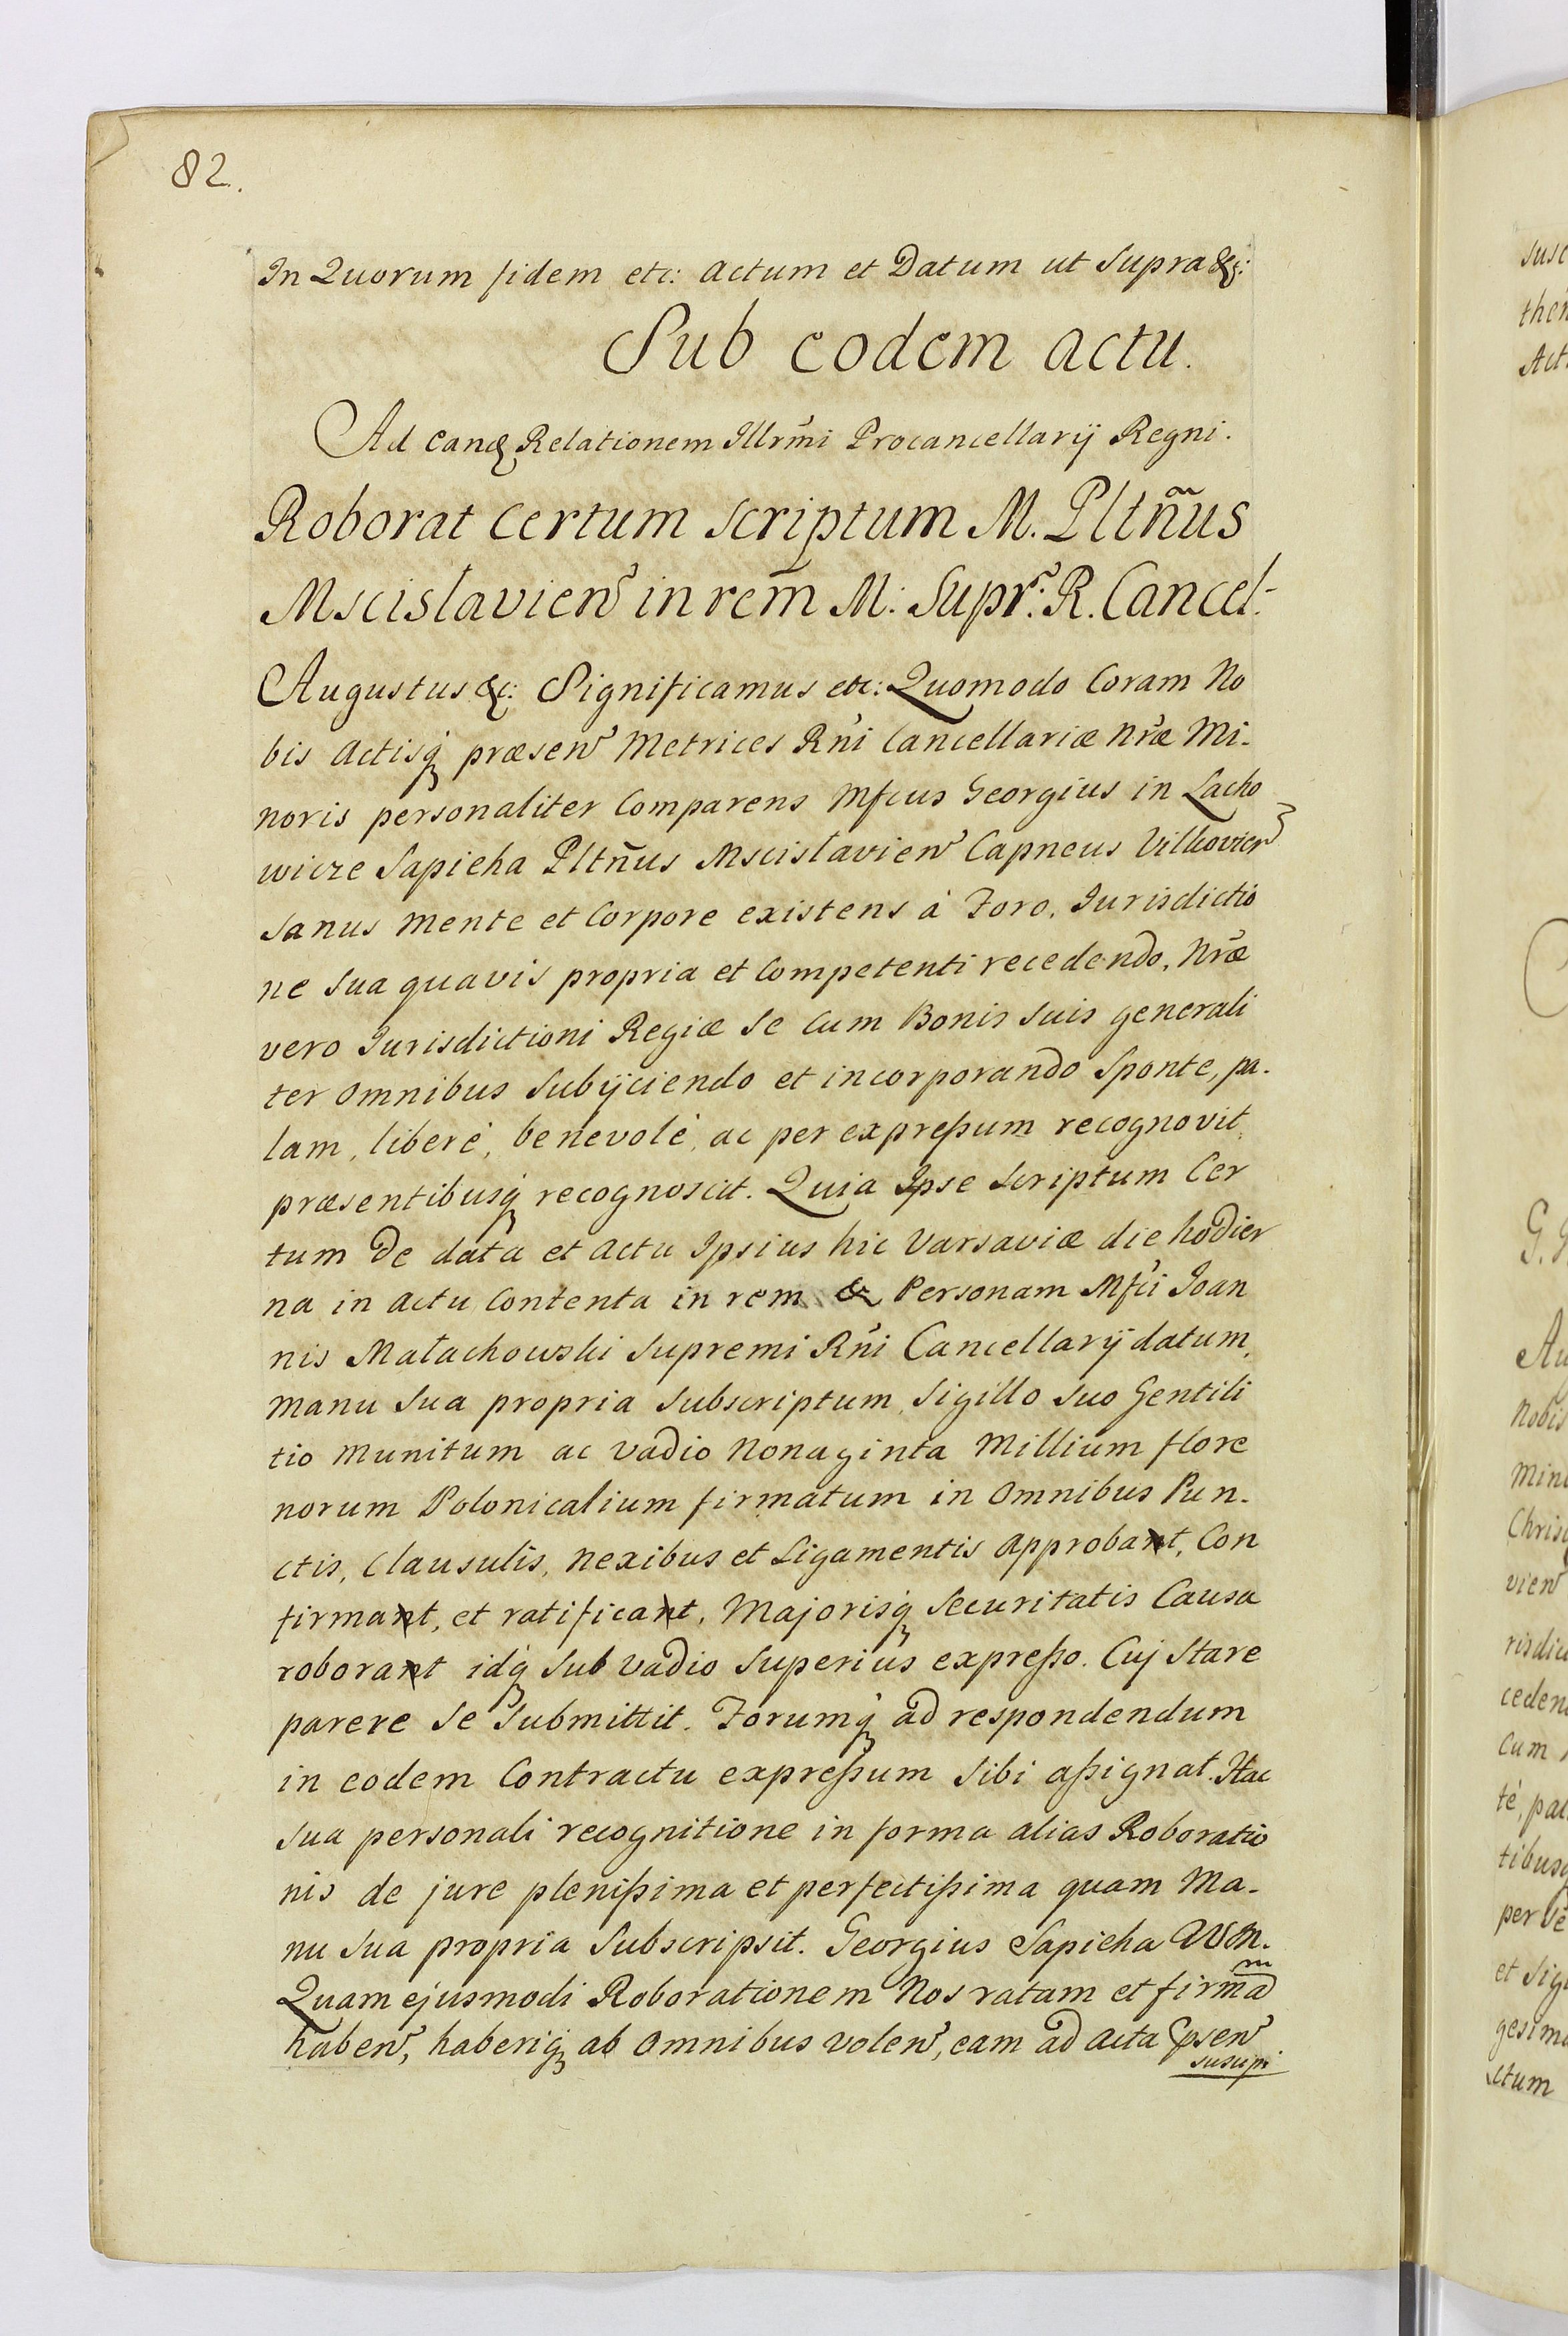 82.
In Quorum fidem etc: Actum et Datum ut Supra &c:
Sub eodem actu.
Ad eanq̃ Relationem Illrm̃i Procancellarij Regni.
Roborat Certum Scriptum M. Pltñus
Mscislavien̄ in rem̄ M: Supr: R. Cancel:
Augustus &c: Significamus etc: Quomodo Coram No
bis Actisq́ præsen̄ Metrices Rñi Cancellariæ Nræ Mi-
noris personaliter Comparens Mfcus Georgius in Lacho
wicze Sapieha Pltñus Mscislavien̄ Capneus Vilkovien̄
Sanus Mente et Corpore existens á Foro, Iurisdictio
ne Sua quavis propria et Competenti recedendo, Nræ
vero Iurisdictioni Regiæ Se Cum Bonis Suis generali
ter Omnibus Subijciendo et incorporando Sponte, pa-
lam, liberé, benevolé, ac per expreßum recognovit,
præsentibusq́ recognoscit. Quia Ipse Scriptum Cer
tum de data et Actu Ipsius hic Varsaviæ die hodier
na in Actu Contenta in rem & Personam Mfci Ioan
nis Małachowski Supremi Rñi Cancellarij datum,
Manu Sua propria Subscriptum, Sigillo Suo Gentili
tio Munitum ac Vadio Nonaginta Millium flore
norum Polonicalium firmatum in Omnibus Pun-
ctis, Clausulis, Nexibus et Ligamentis Approbant, Con
firmant, et ratificant, Majorisq́ Securitatis Causa
roborant idq́ Sub Vadio Superiús expreßo. Cuj Stare
parere Se Submittit. Forumq́ ad respondendum
in eodem Contractu expreßum Sibi aßignat. Hac
Sua personali recognitione in forma alias Roboratio
nis de jure pleníßima et perfectißima quam Ma-
nu Sua propria Subscripsit. Georgius Sapieha WM.
Quam ejusmodi Roborationem Nos ratam et firmã
haben̄, haberiq́ ab Omnibus Volen̄, eam ad Acta psen̄
suscipi